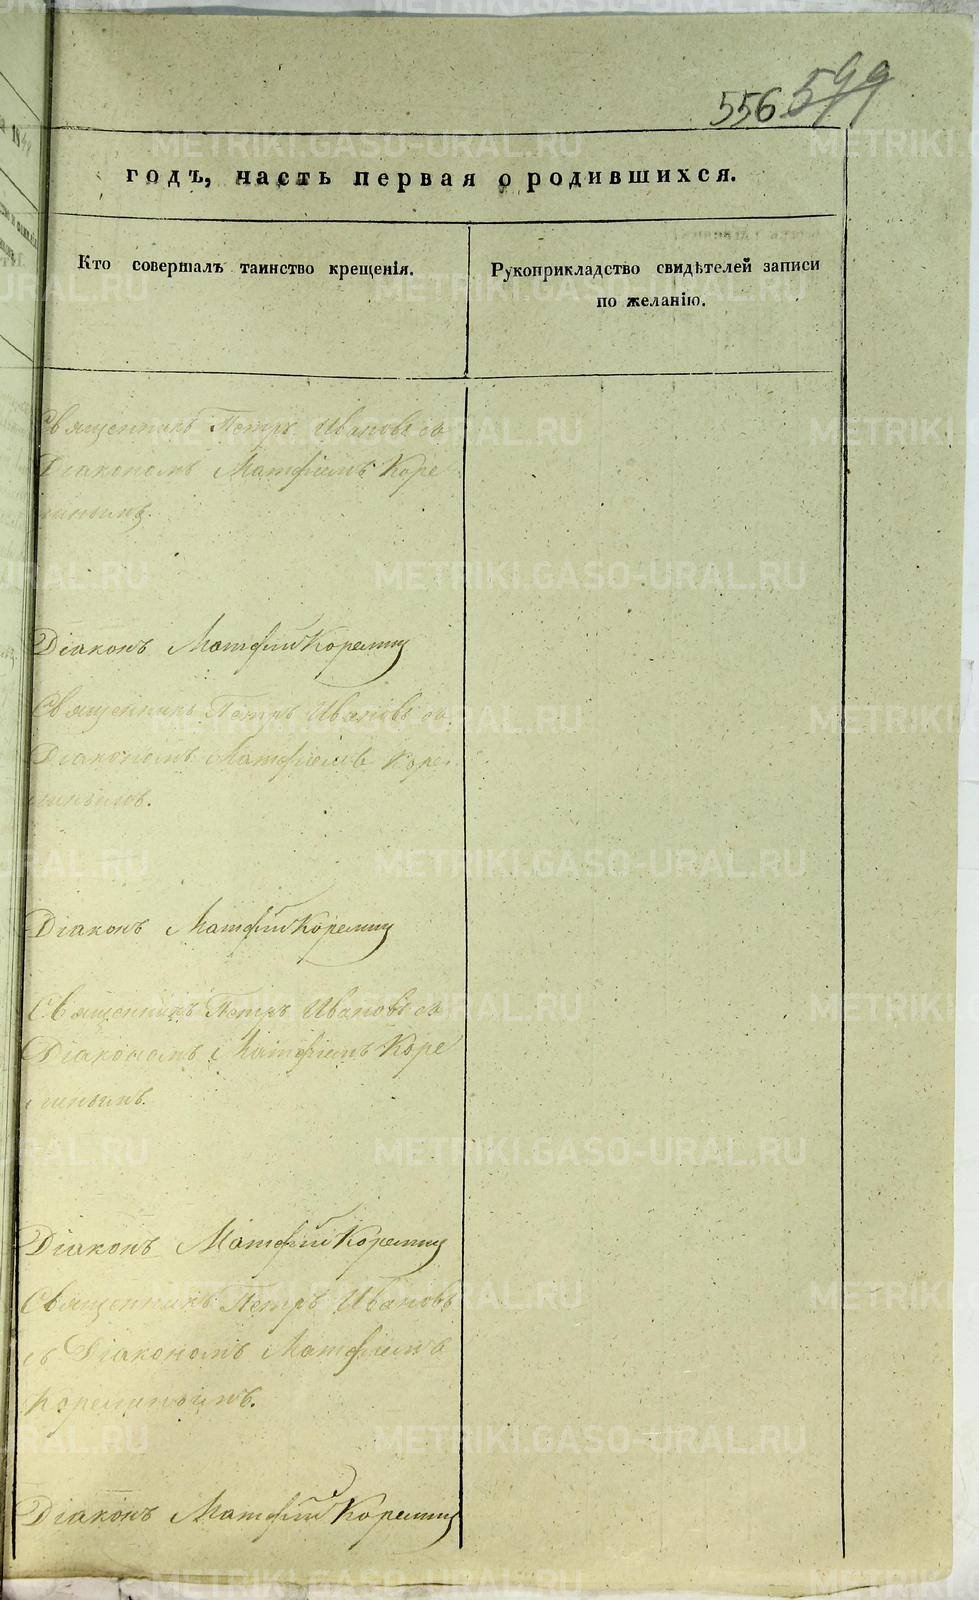 556 599
годъ, часть первая о родившихся.
Кто совершалъ таинство крещенія.
Рукоприкладство свидѣтелей записи
по желанію.
Священникъ Петръ Ивановъ съ
Діакономъ Матфіемъ Коре
линымъ.
Діаконъ Матфій Корелинъ
Священникъ Петръ Ивановъ съ
Діакономъ Матфіемъ Коре
линымъ.
Діаконъ Матфій Корелинъ
Священникъ Петръ Ивановъ съ
Діакономъ Матфіемъ Коре
линымъ.
Діаконъ Матфій Корелинъ
Священникъ Петръ Ивановъ
съ Діакономъ Матфіемъ
Корелинымъ.
Діаконъ Матфій Корелинъ
METRIKI.GASO-URAL.RU